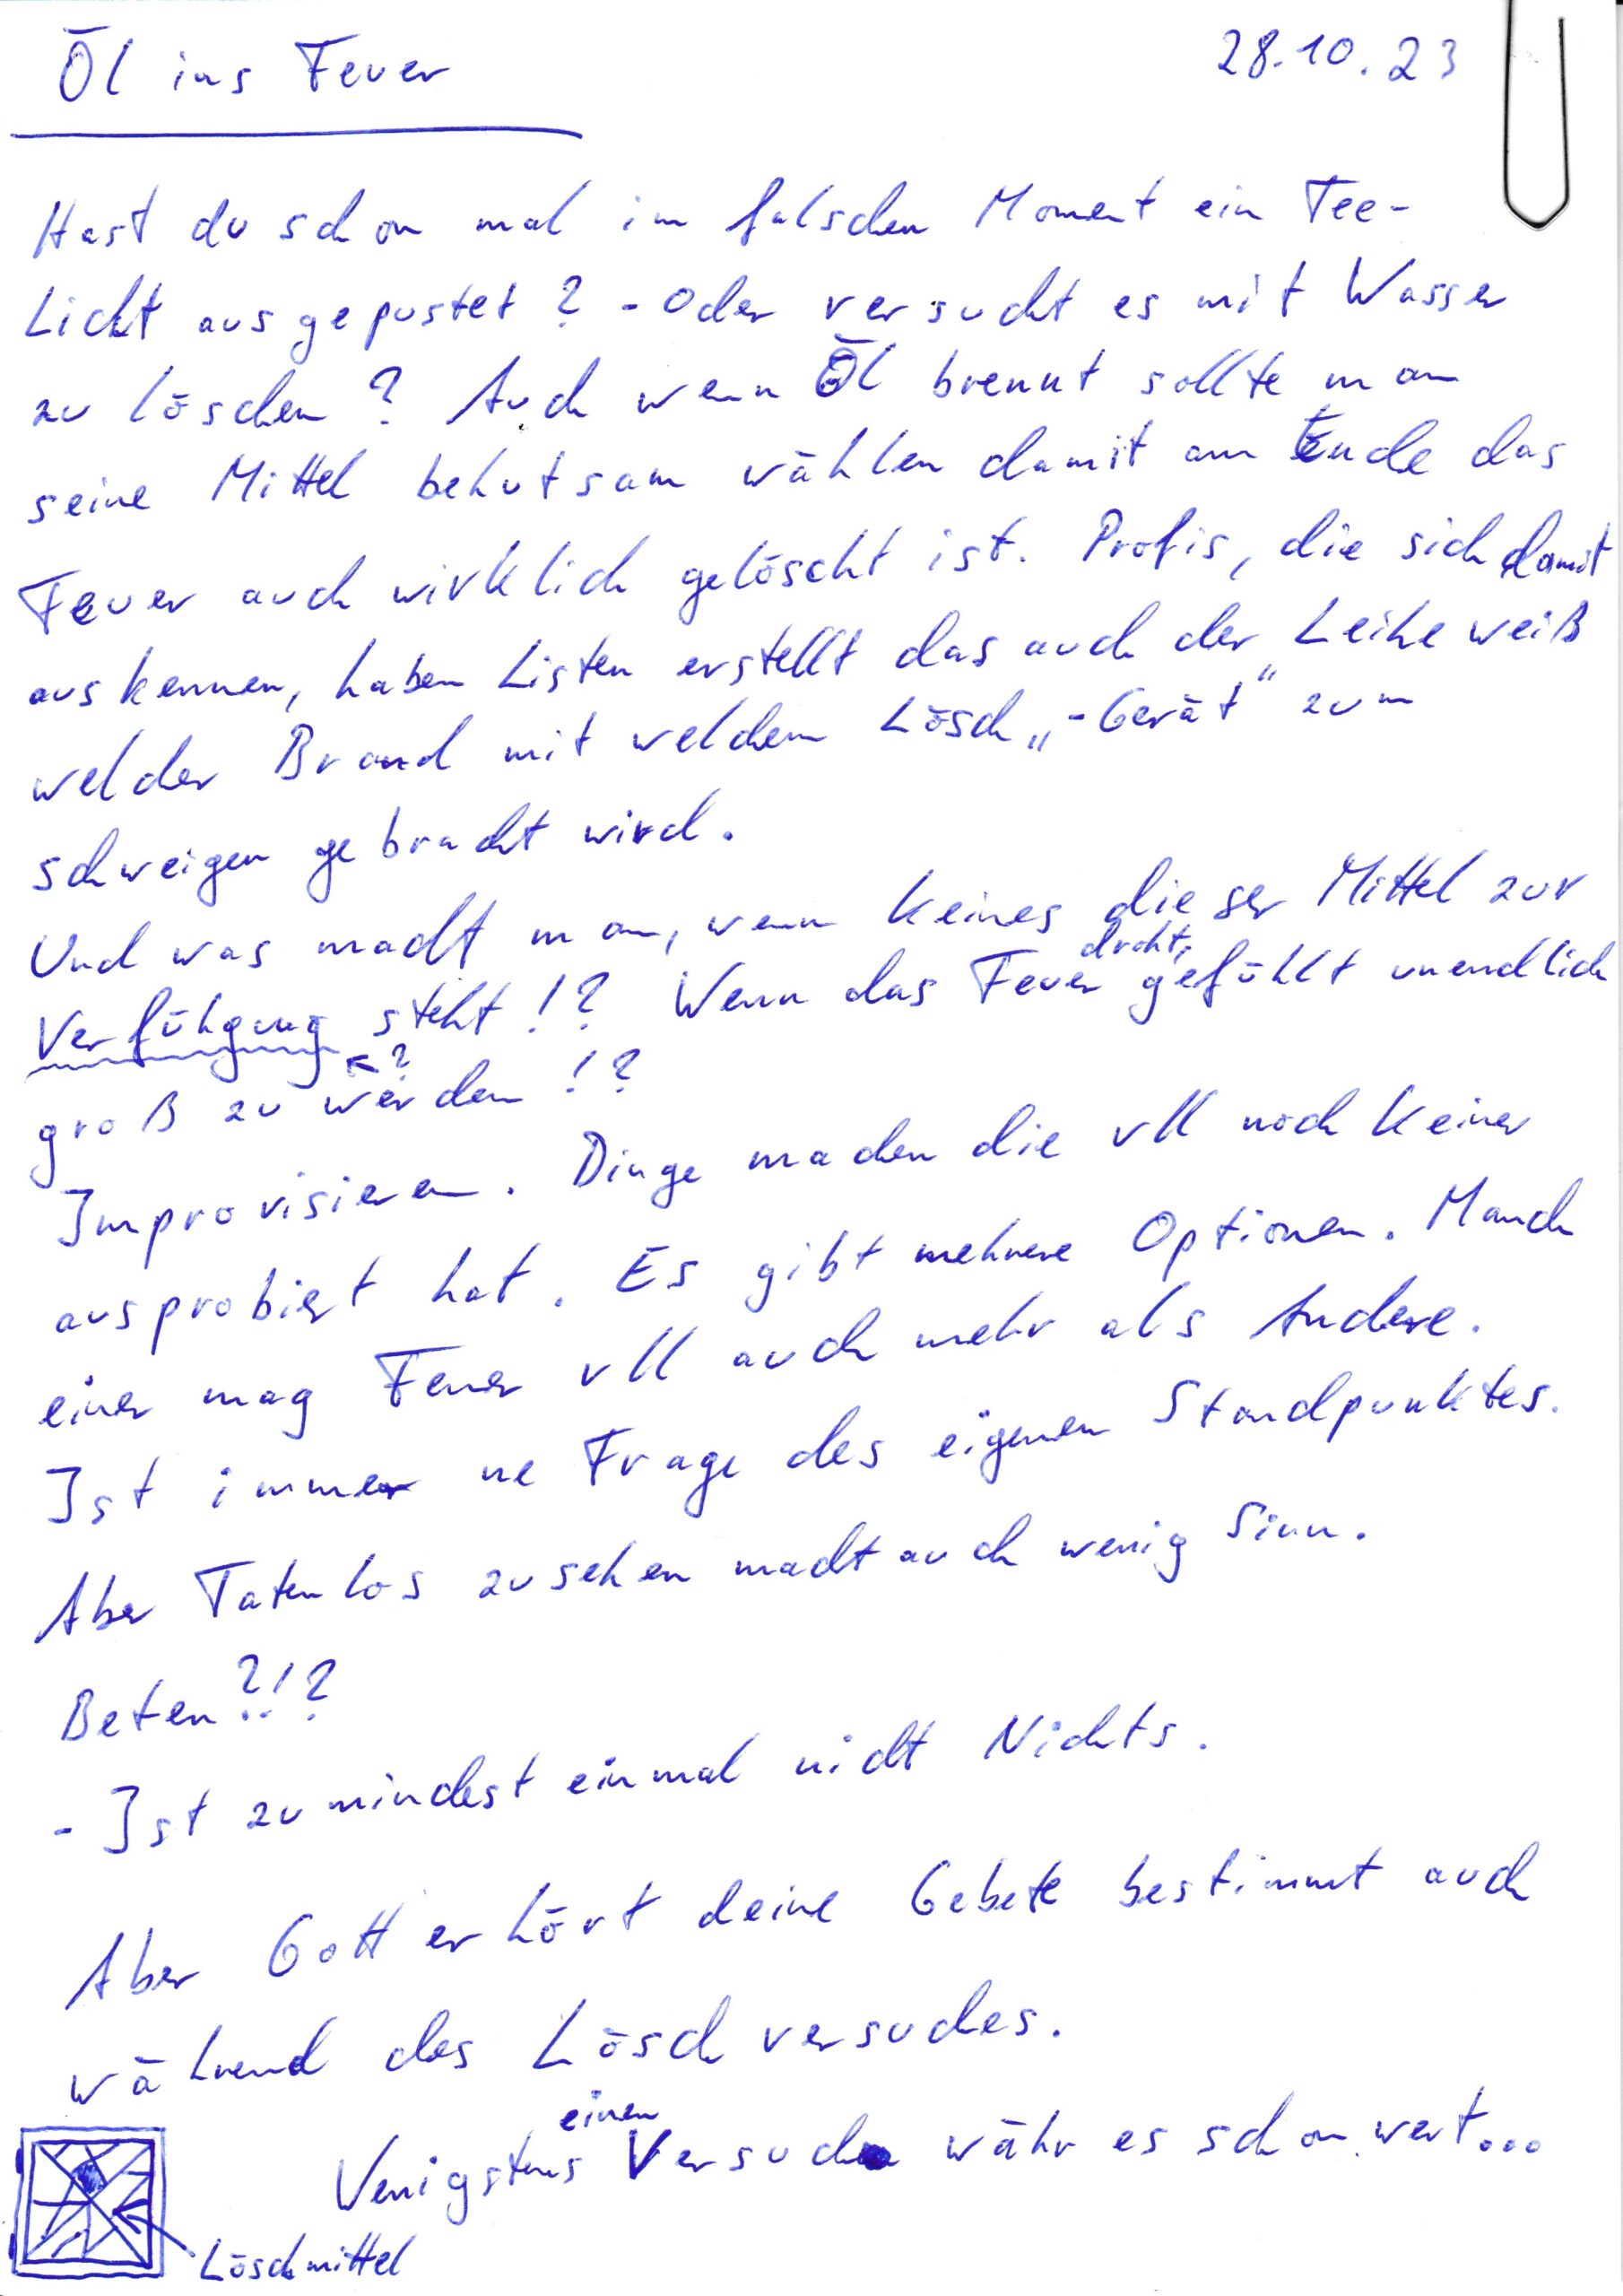 Öl ins Feuer
28.10.23
Hast du schon mal im falschen Moment ein Tee-
Licht ausgepustet? - Oder versucht es mit Wasser
zu löschen? Auch wenn Öl brennt sollte man
seine Mittel behutsam wählen damit am Ende das
Feuer auch wirklich gelöscht ist. Profis, die sich damit
auskennen, haben Listen erstellt das auch der Leihe weiß
welcher Brand mit welchem Lösch„-Gerät" zum
schweigen gebracht wird.
Und was macht man, wenn keines dieser Mittel zur
Verfühgung steht!? Wenn das Feuer droht, gefühlt unendlich
?
groß zu werden!?
Improvisieren. Dinge machen die vll noch keiner
ausprobiert hat. Es gibt mehrere Optionen. Manch
einer mag Feuer vll auch mehr als Andere.
Ist immer ne Frage des eigenen Standpunktes.
Aber Tatenlos zusehen macht auch wenig Sinn.
Beten?!?
- Ist zumindest einmal nicht Nichts.
Aber Gott erhört deine Gebete bestimmt auch
während des Löschversuches.
Wenigstens einen Versuch währ es schon wert...
Löschmittel